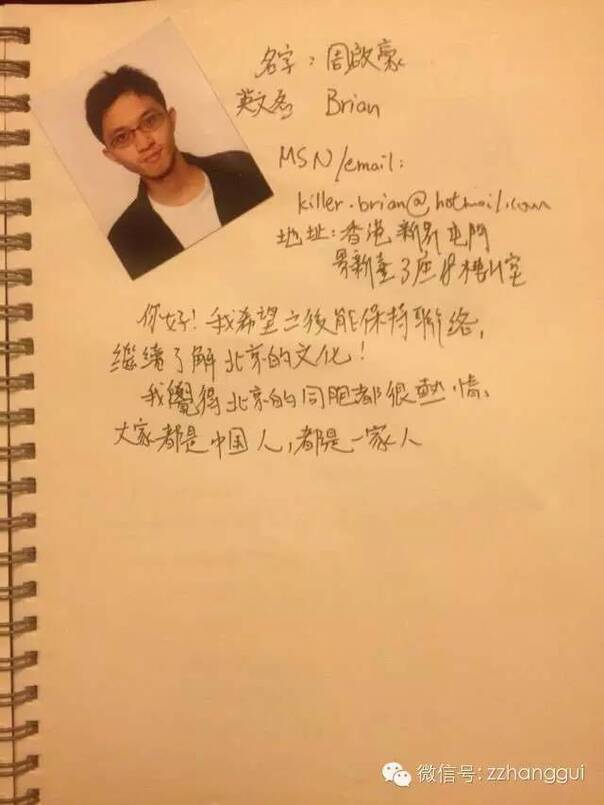 名字：周啟豪
英文名 Brian
MSN/email:
killer.brian@hotmail.com
地址：香港新界屯門
新 3座8樓H室
你好！我希望之後能保持聯絡，
繼續了解北京的文化！
我覺得北京的同胞都很熱情、
大家都是中国人，都是一家人
微信号: zzhanggui